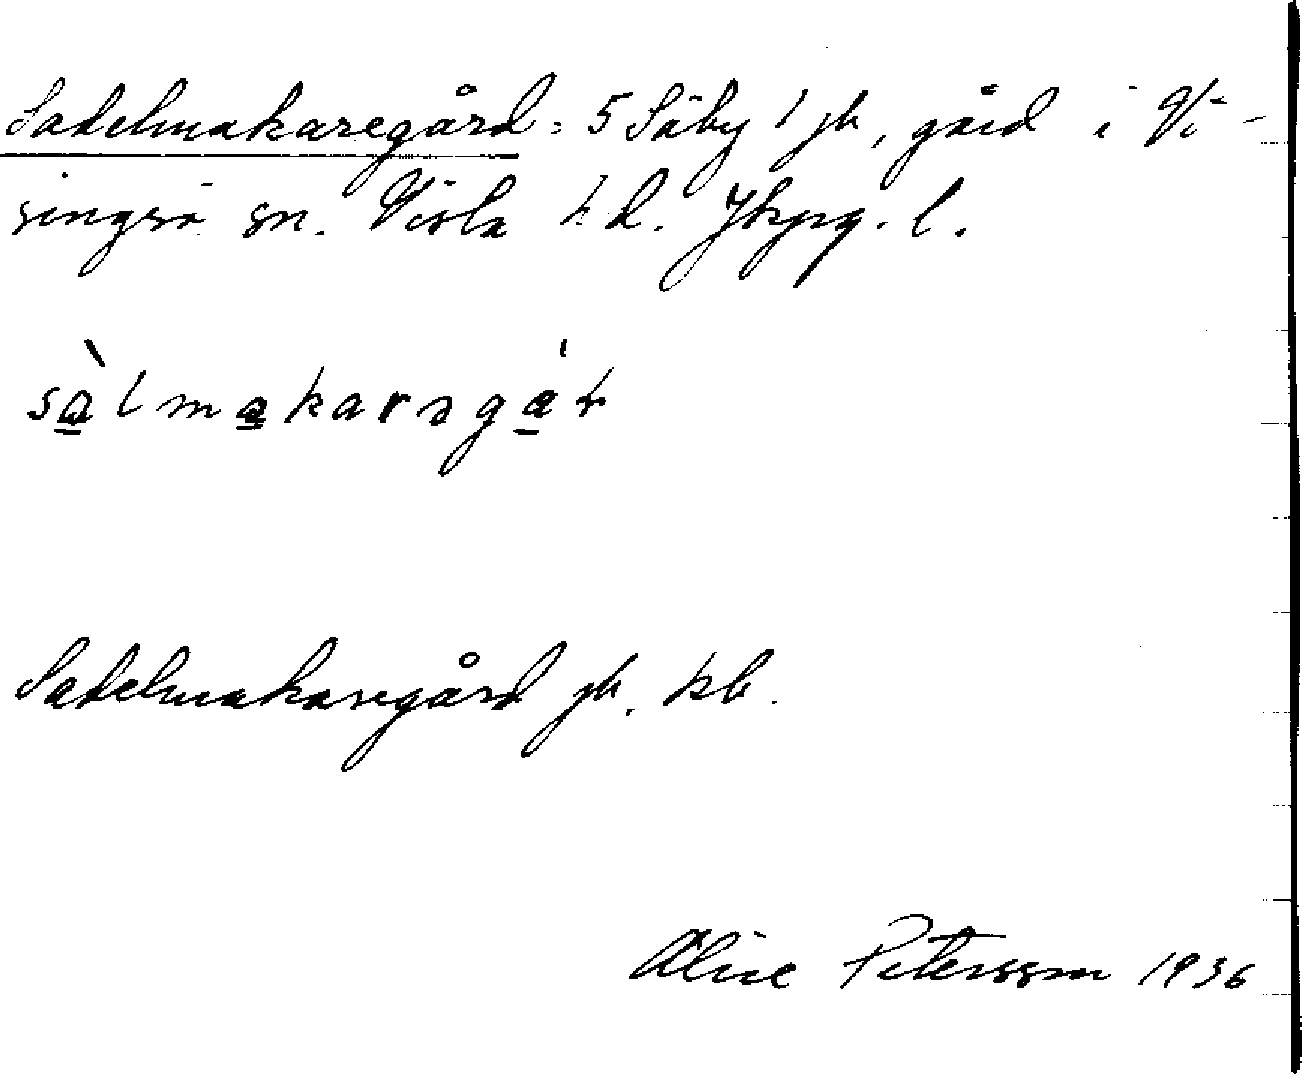 Sadelmakaregård = 5 Säby 1 jb, gård i Vi-
singsö sn. Vista hd. Jkpg. l.
sàlmakarəgá̱r
Sadelmakaregård jb, kb.
Alice Petersson 1936